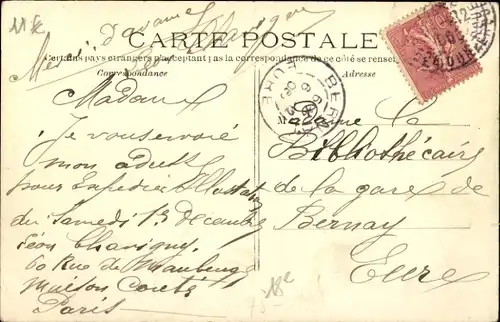 11 F
Merci d'avance
CARTE POSTALE
Certains pays étrangers n'acceptant pas la correspondance de ce côté se renseigner
Correspondance
Adresse
Madame
Je vous envoie
mon adresse
pour expédier
du Samedi 13 Décembre
Léon
60 Rue de Maubeuge
Maison
Paris
BERNAY
EURE
Madame la
Bibliothécaire
de la gare de
Bernay
Eure
18e